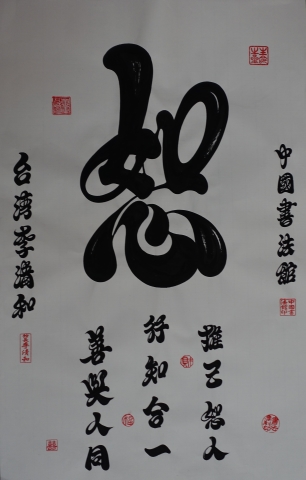 恕
中國書法館
推己恕人
行知合一
善與人同
台湾李清和